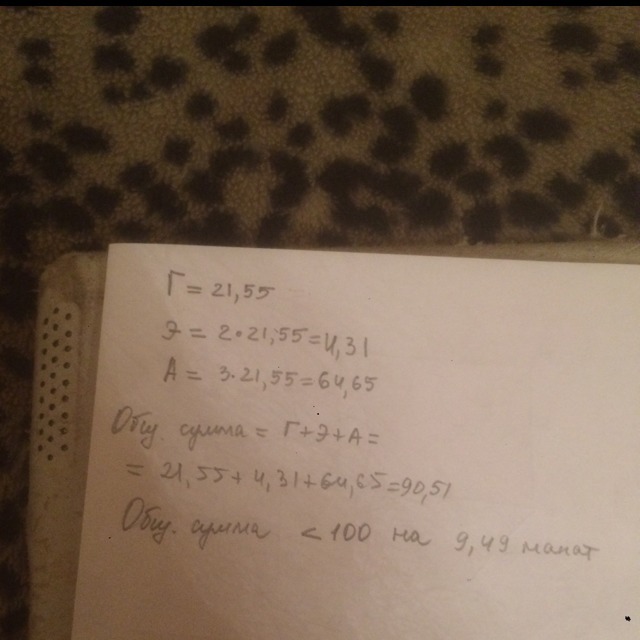 Г = 21,55
Э = 2·21,55=4,31
А = 3·21,55=64,65
Общ. сумма = Г+Э+А=
= 21,55+4,31+64,65=90,51
Общ. сумма < 100 на 9,49 манат